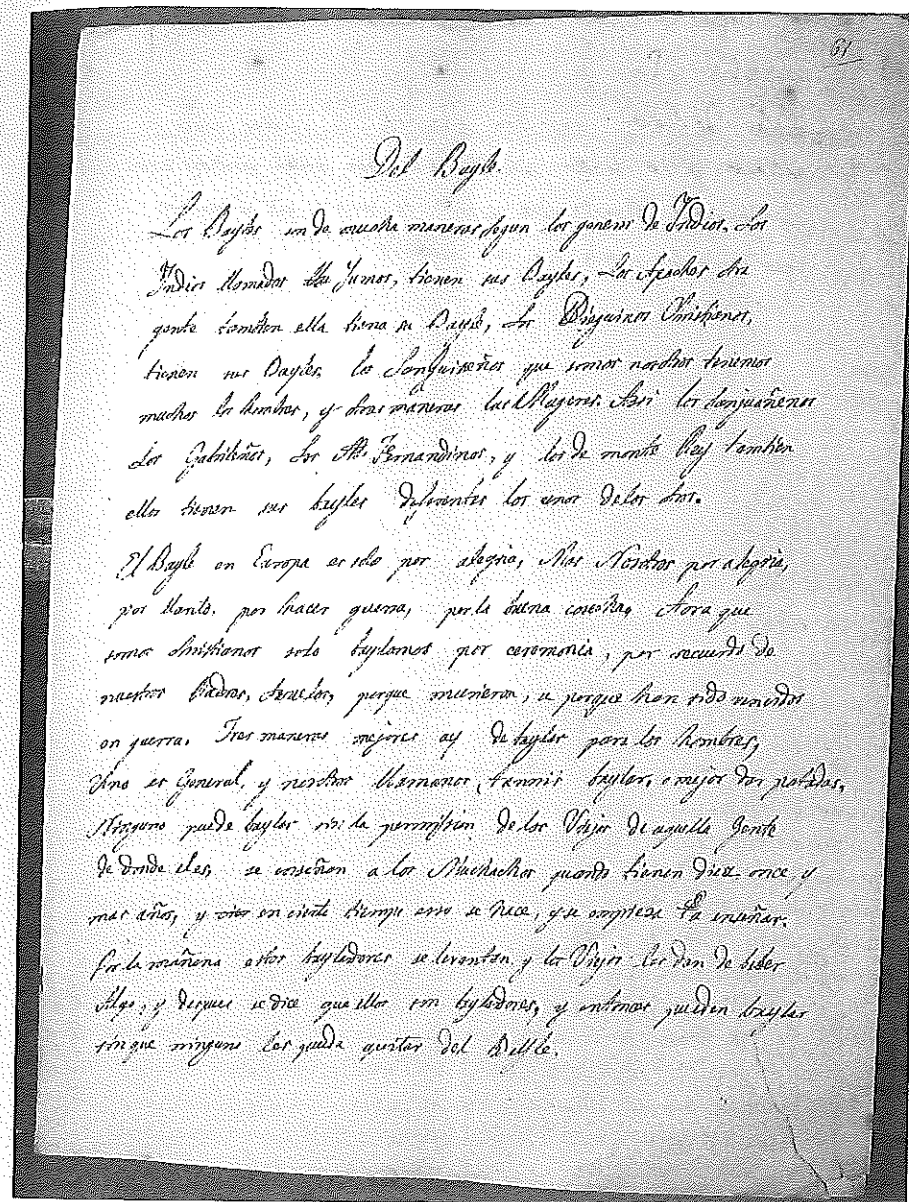 61
Del Bayle.
Los Bayles son de mucha maneras segun los generos de Indios. Los
Indios llamados Yumos, tienen sus Bayles, Los Apaches otra
gente tambien ella tiene su Bayle, Los Dieguinos Christianos,
tienen sus Bayles, los Sanluiseños que somos nosotros tenemos
muchos los hombres, y otras maneras las Mugeres. Asi los Sanjuañenos
Los Gabrileños, Los Fernandinos, y los de monte Rey tambien
ellos tienen sus bayles diferentes los unos delos otros.
El Bayle en Europa es solo por alegria, Mas Nosotros por alegria,
por llanto, por hacer guerra, por la buena cosecha, Aora que
somos christianos solo baylamos por ceremonia, por recuerdo de
nuestros Padres, Abuelos, porque murieron, u porque han sido vencidos
en guerra. Tres maneras mejores ay de baylar para los hombres,
Uno es General, y nosotros llamamos, tannis baylar, o mejor dar patadas.
Ninguno puede baylar sin la permision de los Viejos de aquella Gente
de donde el es, se enseñan a los Muchachos quando tienen diez once y
mas años, y en cierto tiempo esso se hace, y se empieza a enseñar.
Por la mañana estos bayladores se levantan y los Viejos les dan de beber
Algo, y despues se dice que ellos son bayladores, y entonces pueden baylar
sin que ninguno les pueda quitar del Bayle.